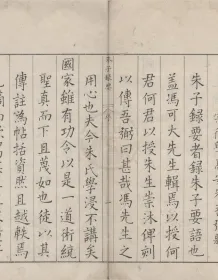 朱子錄要
朱子錄要者錄朱子要語也
蓋馮可大先生輯焉以授何
君何君以授朱生崇沐俾剞
以傳吾弼曰甚哉馮先生之
用心也夫今朱氏學浸不講矣
國家雖有功令以是一道術統
聖真而下且蔑如也徒以其
傳註為帖括資然且越軼焉